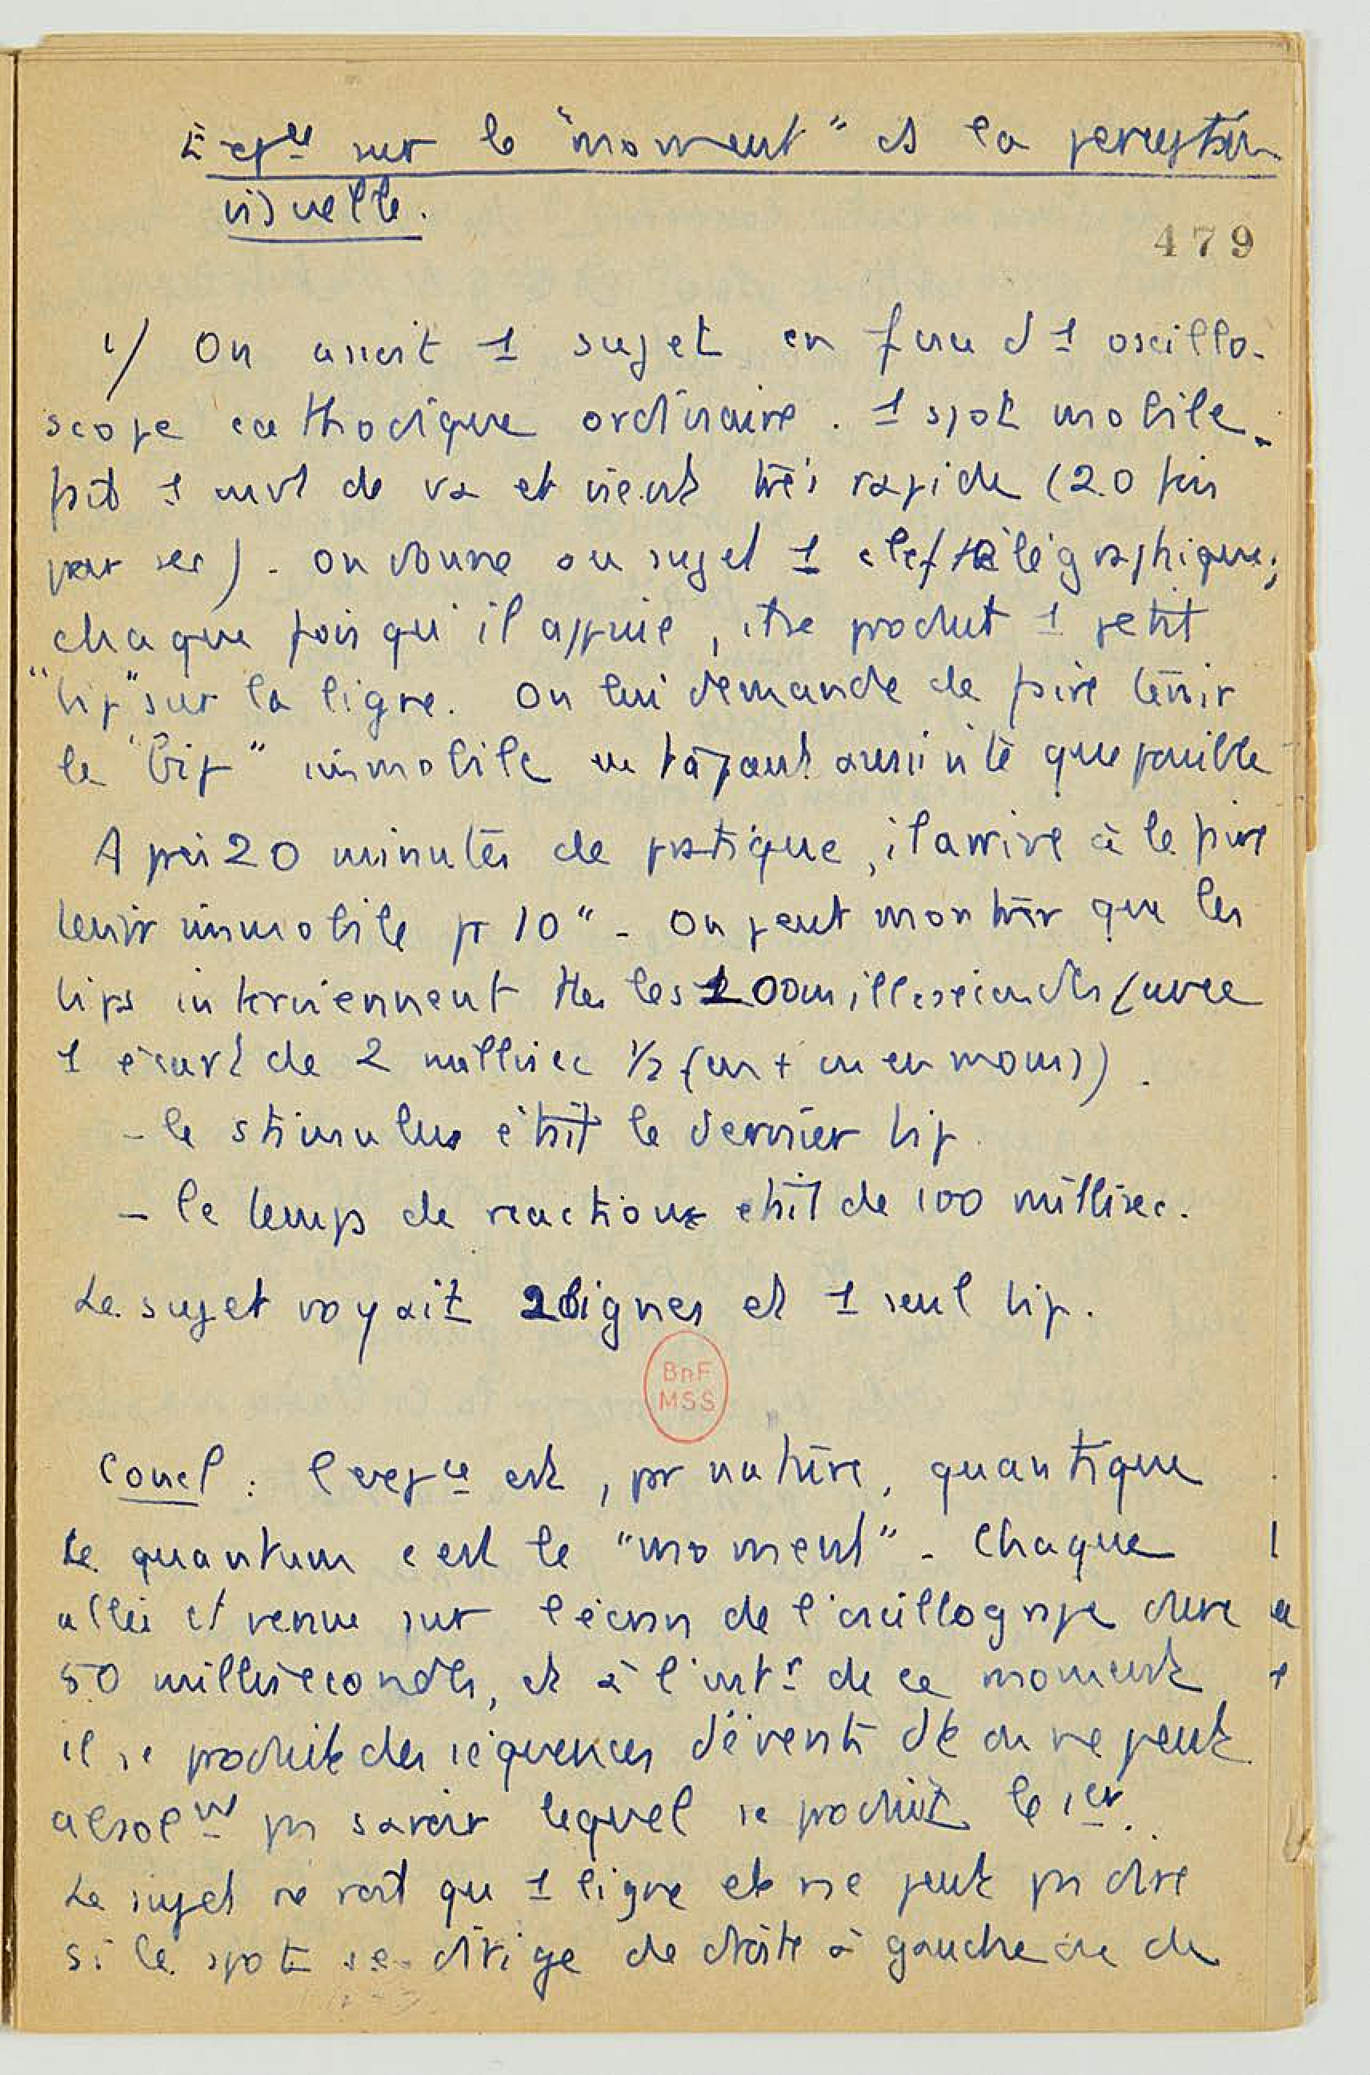 Expces sur le "moment" et la perception
visuelle.
479
1/ On assoit 1 sujet en face d'1 oscillo-
scope cathodique ordinaire. 1 spot mobile
fait 1 mvt de va et vient très rapide (20 fois
par sec). On donne au sujet 1 clef télégraphique;
chaque fois qu'il appuie, il se produit 1 petit
"bip" sur la ligne. On lui demande de faire tenir
le "bip" immobile en tapant aussi vite que possible
Après 20 minutes de pratique, il arrive à le faire
tenir immobile pr 10". On peut montrer que les
bips interviennent ttes les 100 millisecondes (avec
1 écart de 2 millisec 1/2 (en + ou en moins)).
- le stimulus était le dernier bip.
- le temps de reaction était de 100 millisec.
Le sujet voyait 2 lignes et 1 seul bip.
BnF
MSS
Concl : l'expce est, par nature, quantique
Le quantum c'est le "moment". Chaque
allée et venue sur l'écran de l'oscillographe dure
50 millisecondes, et à l'intr de ce moment
il se produit des séquences d'évents dt on ne peut
absolmt pas savoir lequel se produit le 1er.
Le sujet ne voit qu'1 ligne et ne peut pas dire
si le spot se dirige de droite à gauche ou de